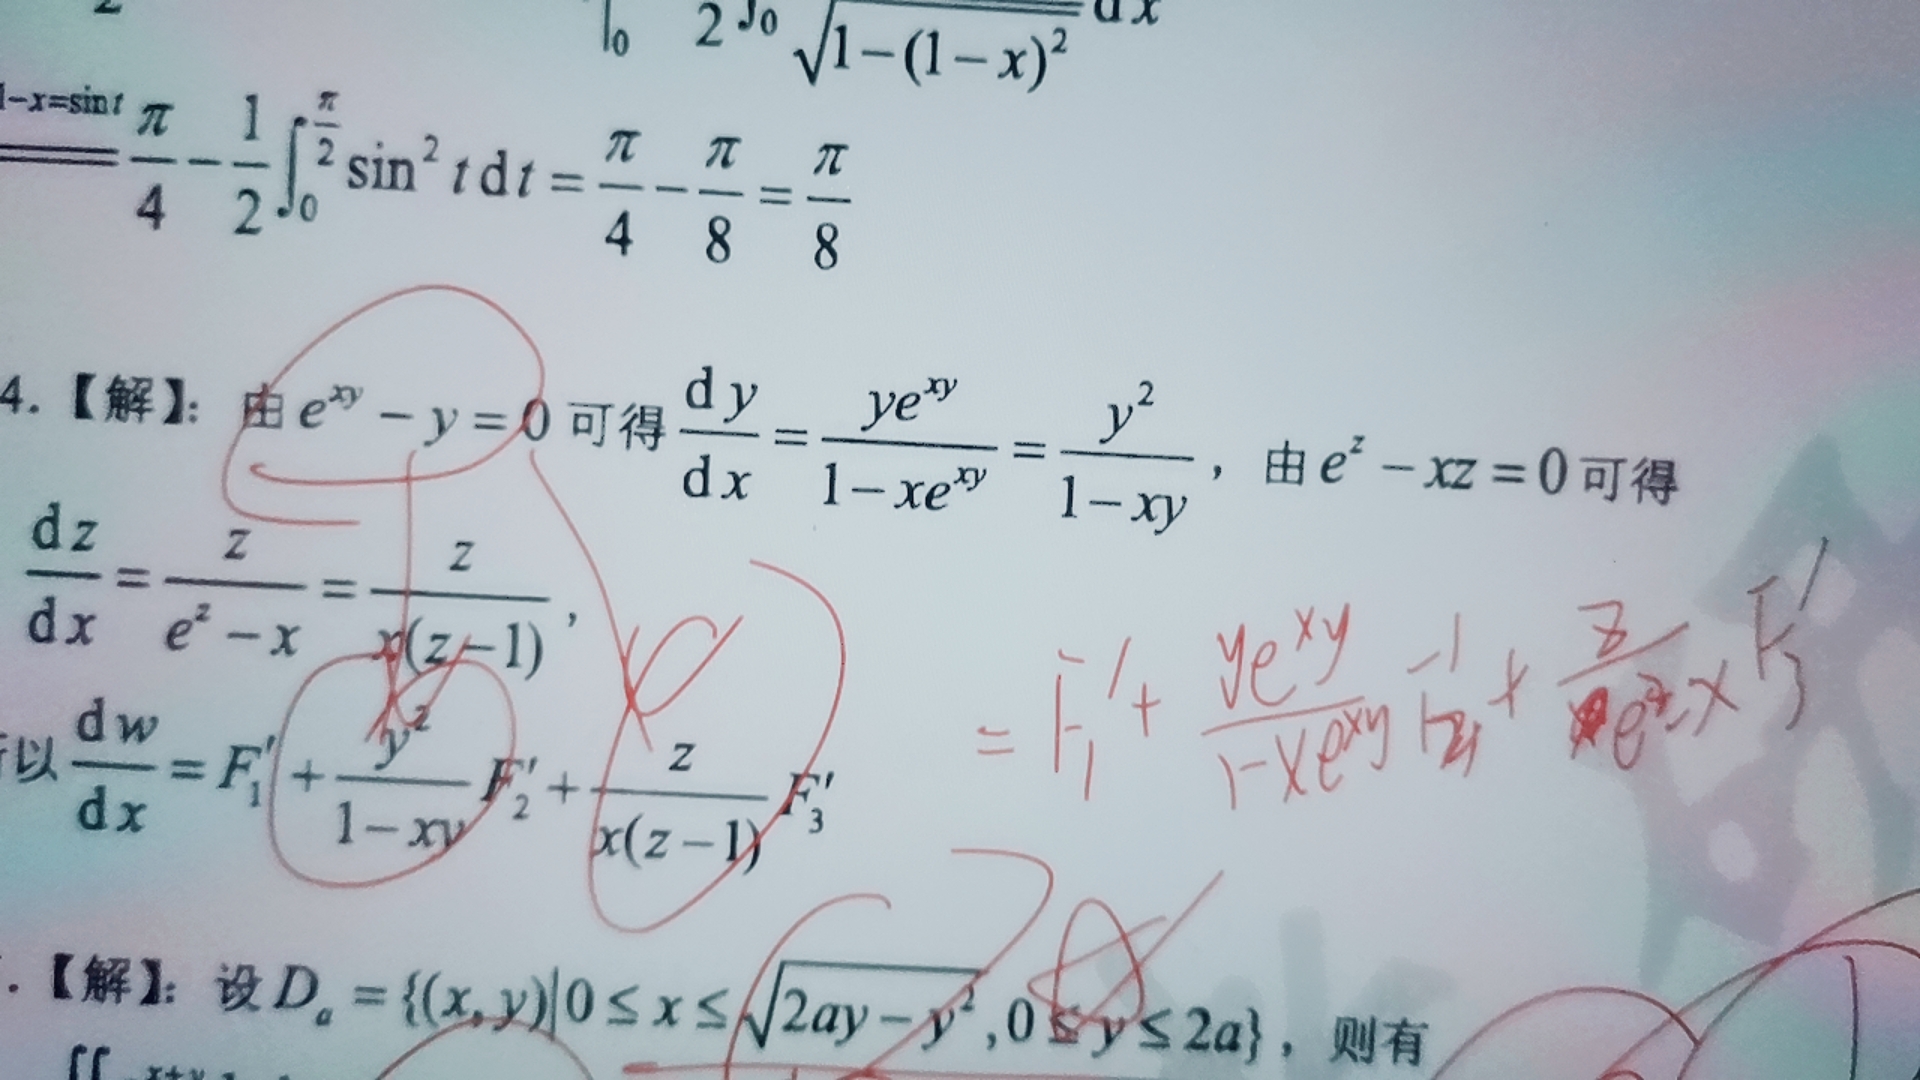 |₀ 2 ∫₀ √(1-(1-x)²) dx
1-x=sin t π/4 - 1/2 ∫₀^(π/2) sin² t dt = π/4 - π/8 = π/8
4.【解】: 由 e^(xy) - y = 0 可得 dy/dx = ye^(xy)/(1-xe^(xy)) = y²/(1-xy), 由 e^z - xz = 0 可得
dz/dx = z/(e^z - x) = z/(x(z-1)),
以 dw/dx = F₁′ + y²/(1-xy) F₂′ + z/(x(z-1)) F₃′
= F₁′ + ye^(xy)/(1-xe^(xy)) F₂′ + z/(e^z-x) F₃′
.【解】: 设 Dₐ = {(x, y)|0 ≤ x ≤ √(2ay - y²), 0 ≤ y ≤ 2a}, 则有